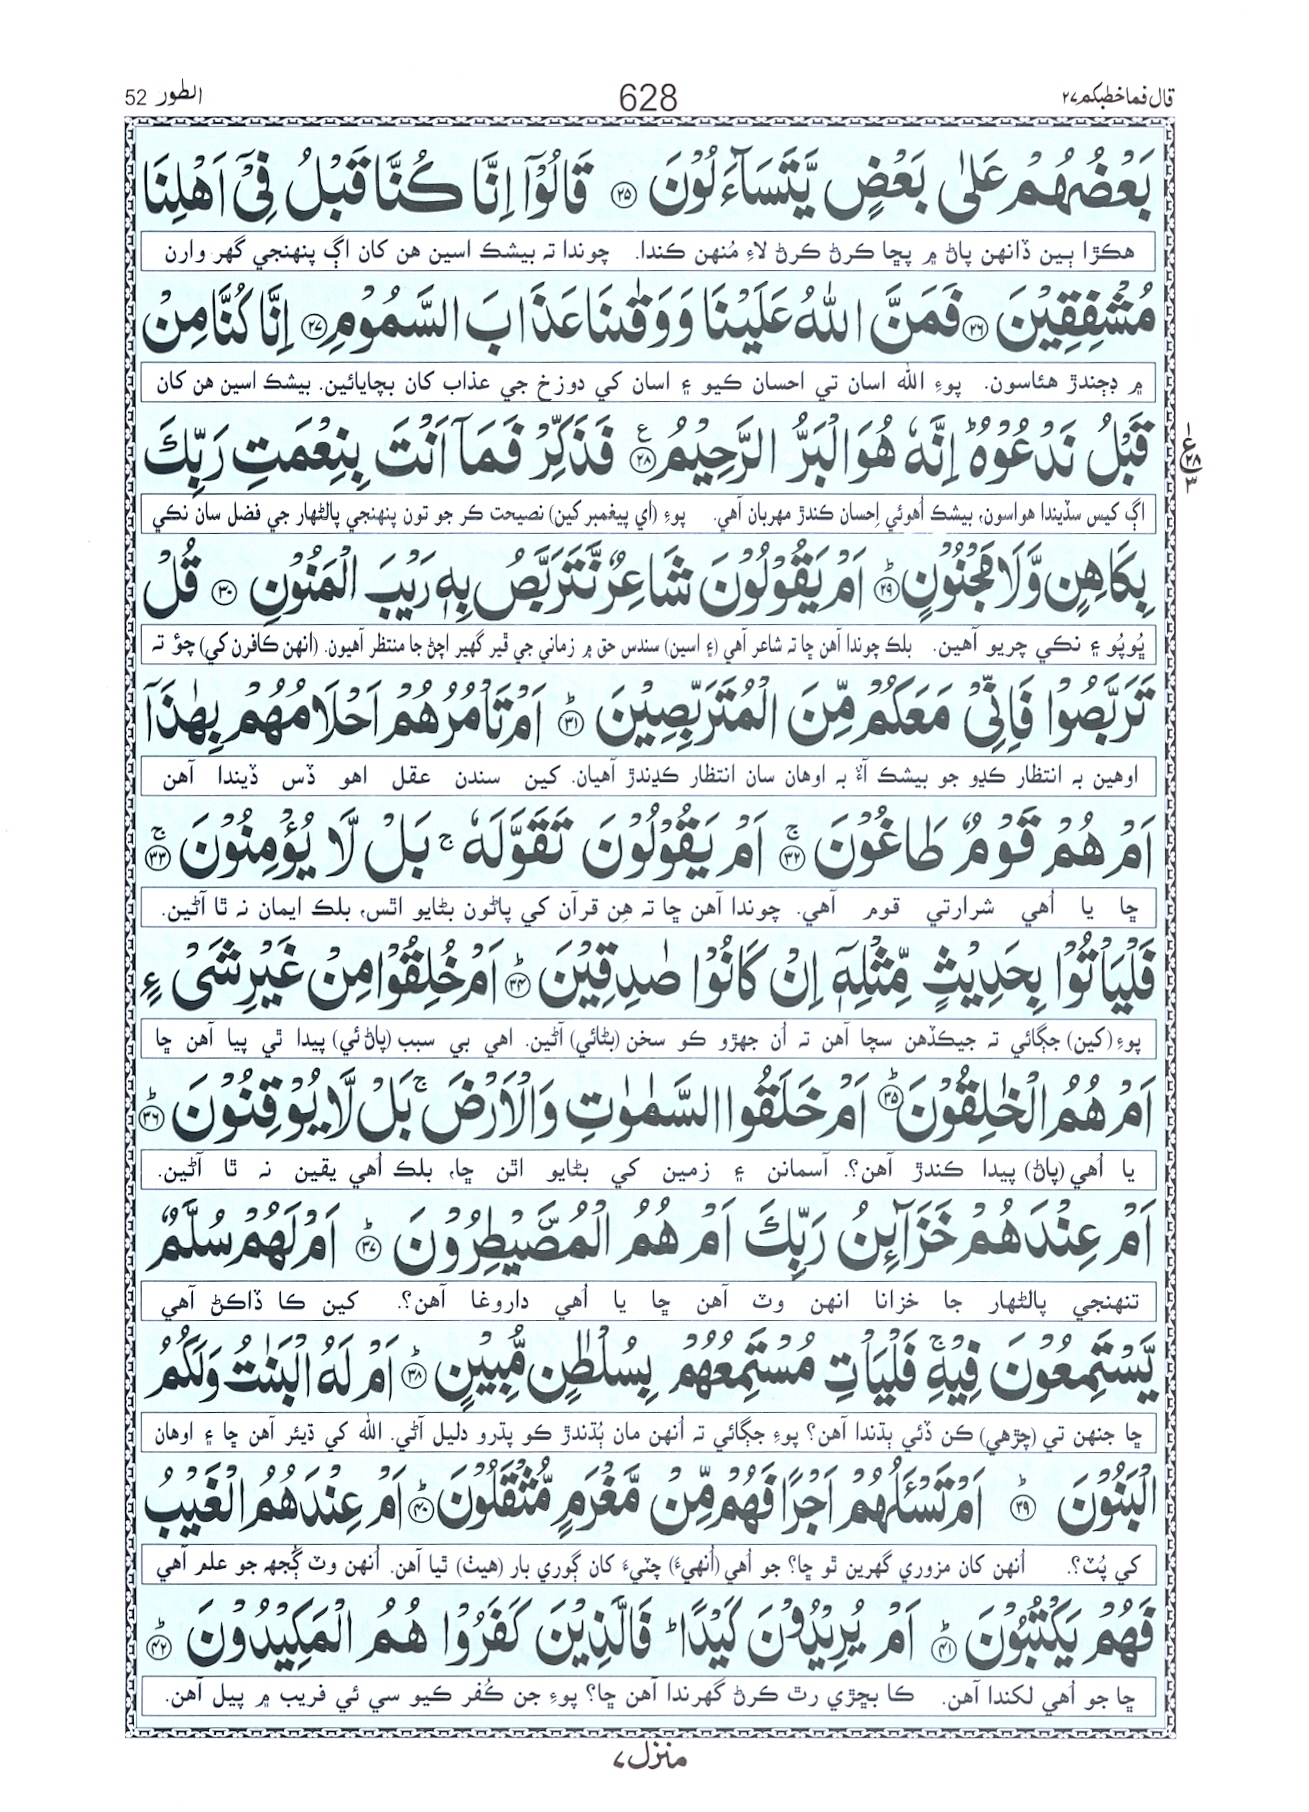 قال فما خطبكم ۲۷
628
الطور 52
بَعْضُهُمْ عَلٰى بَعْضٍ يَّتَسَآءَلُوْنَ ۝۲۵ قَالُوْۤا اِنَّا كُنَّا قَبْلُ فِيْۤ اَهْلِنَا
هڪڙا ٻين ڏانهن پاڻ ۾ پڇا ڪرڻ ڪرڻ لاءِ مُنهن ڪندا. چوندا تہ بيشڪ اسين هن کان اڳ پنهنجي گهر وارن
مُشْفِقِيْنَ ۝۲۶ فَمَنَّ اللّٰهُ عَلَيْنَا وَوَقٰىنَا عَذَابَ السَّمُوْمِ ۝۲۷ اِنَّا كُنَّا مِنْ
۾ ڊڄندڙ هئاسون. پوءِ الله اسان تي احسان ڪيو ۽ اسان کي دوزخ جي عذاب کان بچايائين. بيشڪ اسين هن کان
قَبْلُ نَدْعُوْهُ ؕ اِنَّهٗ هُوَ الْبَرُّ الرَّحِيْمُ ۝۲۸ ع فَذَكِّرْ فَمَاۤ اَنْتَ بِنِعْمَتِ رَبِّكَ
ع ۲۸ ۳
اڳ کيس سڏيندا هواسون، بيشڪ اُهوئي اِحسان ڪندڙ مهربان آهي. پوءِ (اي پيغمبر کين) نصيحت ڪر جو تون پنهنجي پالڻهار جي فضل سان نڪي
بِكَاهِنٍ وَّلَا مَجْنُوْنٍ ؕ ۝۲۹ اَمْ يَقُوْلُوْنَ شَاعِرٌ نَّتَرَبَّصُ بِهٖ رَيْبَ الْمَنُوْنِ ۝۳۰ قُلْ
ڀُوپُو ۽ نڪي چريو آهين. بلڪ چوندا آهن ڇا تہ شاعر آهي (۽ اسين) سندس حق ۾ زماني جي ڦير گهير اچڻ جا منتظر آهيون. (انهن ڪافرن کي) چؤ تہ
تَرَبَّصُوْا فَاِنِّيْ مَعَكُمْ مِّنَ الْمُتَرَبِّصِيْنَ ؕ ۝۳۱ اَمْ تَاْمُرُهُمْ اَحْلَامُهُمْ بِهٰذَاۤ
اوهين بہ انتظار ڪڍو جو بيشڪ آءٌ بہ اوهان سان انتظار ڪڍندڙ آهيان. کين سندن عقل اهو ڏس ڏيندا آهن
اَمْ هُمْ قَوْمٌ طَاغُوْنَ ۚ ۝۳۲ اَمْ يَقُوْلُوْنَ تَقَوَّلَهٗ ۚ بَلْ لَّا يُؤْمِنُوْنَ ۚ ۝۳۳
ڇا يا اُهي شرارتي قوم آهي. چوندا آهن ڇا تہ هِن قرآن کي پاڻون بڻايو اٿس، بلڪ ايمان نہ ٿا آڻين.
فَلْيَاْتُوْا بِحَدِيْثٍ مِّثْلِهٖۤ اِنْ كَانُوْا صٰدِقِيْنَ ؕ ۝۳۴ اَمْ خُلِقُوْا مِنْ غَيْرِ شَيْءٍ
پوءِ (کين) جڳائي تہ جيڪڏهن سچا آهن تہ اُن جهڙو ڪو سخن (بڻائي) آڻين. اهي بي سبب (پاڻ ئي) پيدا ٿي پيا آهن ڇا
اَمْ هُمُ الْخٰلِقُوْنَ ؕ ۝۳۵ اَمْ خَلَقُوا السَّمٰوٰتِ وَالْاَرْضَ ۚ بَلْ لَّا يُوْقِنُوْنَ ؕ ۝۳۶
يا اُهي (پاڻ) پيدا ڪندڙ آهن؟. آسمانن ۽ زمين کي بڻايو اٿن ڇا، بلڪ اُهي يقين نہ ٿا آڻين.
اَمْ عِنْدَهُمْ خَزَآئِنُ رَبِّكَ اَمْ هُمُ الْمُصَۜيْطِرُوْنَ ؕ ۝۳۷ اَمْ لَهُمْ سُلَّمٌ
تنهنجي پالڻهار جا خزانا انهن وٽ آهن ڇا يا اُهي داروغا آهن؟. کين ڪا ڏاڪڻ آهي
يَّسْتَمِعُوْنَ فِيْهِ ۚ فَلْيَاْتِ مُسْتَمِعُهُمْ بِسُلْطٰنٍ مُّبِيْنٍ ؕ ۝۳۸ اَمْ لَهُ الْبَنٰتُ وَلَكُمُ
ڇا جنهن تي (چڙهي) ڪن ڏئي ٻڌندا آهن؟ پوءِ جڳائي تہ اُنهن مان ٻُڌندڙ ڪو پڌرو دليل آڻي. الله کي ڌيئر آهن ڇا ۽ اوهان
الْبَنُوْنَ ؕ ۝۳۹ اَمْ تَسْـَٔلُهُمْ اَجْرًا فَهُمْ مِّنْ مَّغْرَمٍ مُّثْقَلُوْنَ ؕ ۝۴۰ اَمْ عِنْدَهُمُ الْغَيْبُ
کي پُٽ؟. اُنهن کان مزوري گهرين ٿو ڇا؟ جو اُهي (اُنهيءَ) چٽيءَ کان ڳوري بار (هيٺ) ٿيا آهن. اُنهن وٽ ڳُجهہ جو علم آهي
فَهُمْ يَكْتُبُوْنَ ؕ ۝۴۱ اَمْ يُرِيْدُوْنَ كَيْدًا ؕ فَالَّذِيْنَ كَفَرُوْا هُمُ الْمَكِيْدُوْنَ ؕ ۝۴۲
ڇا جو اُهي لکندا آهن. ڪا بڇڙي رٿ ڪرڻ گهرندا آهن ڇا؟ پوءِ جن ڪُفر ڪيو سي ئي فريب ۾ پيل آهن.
منزل ۷